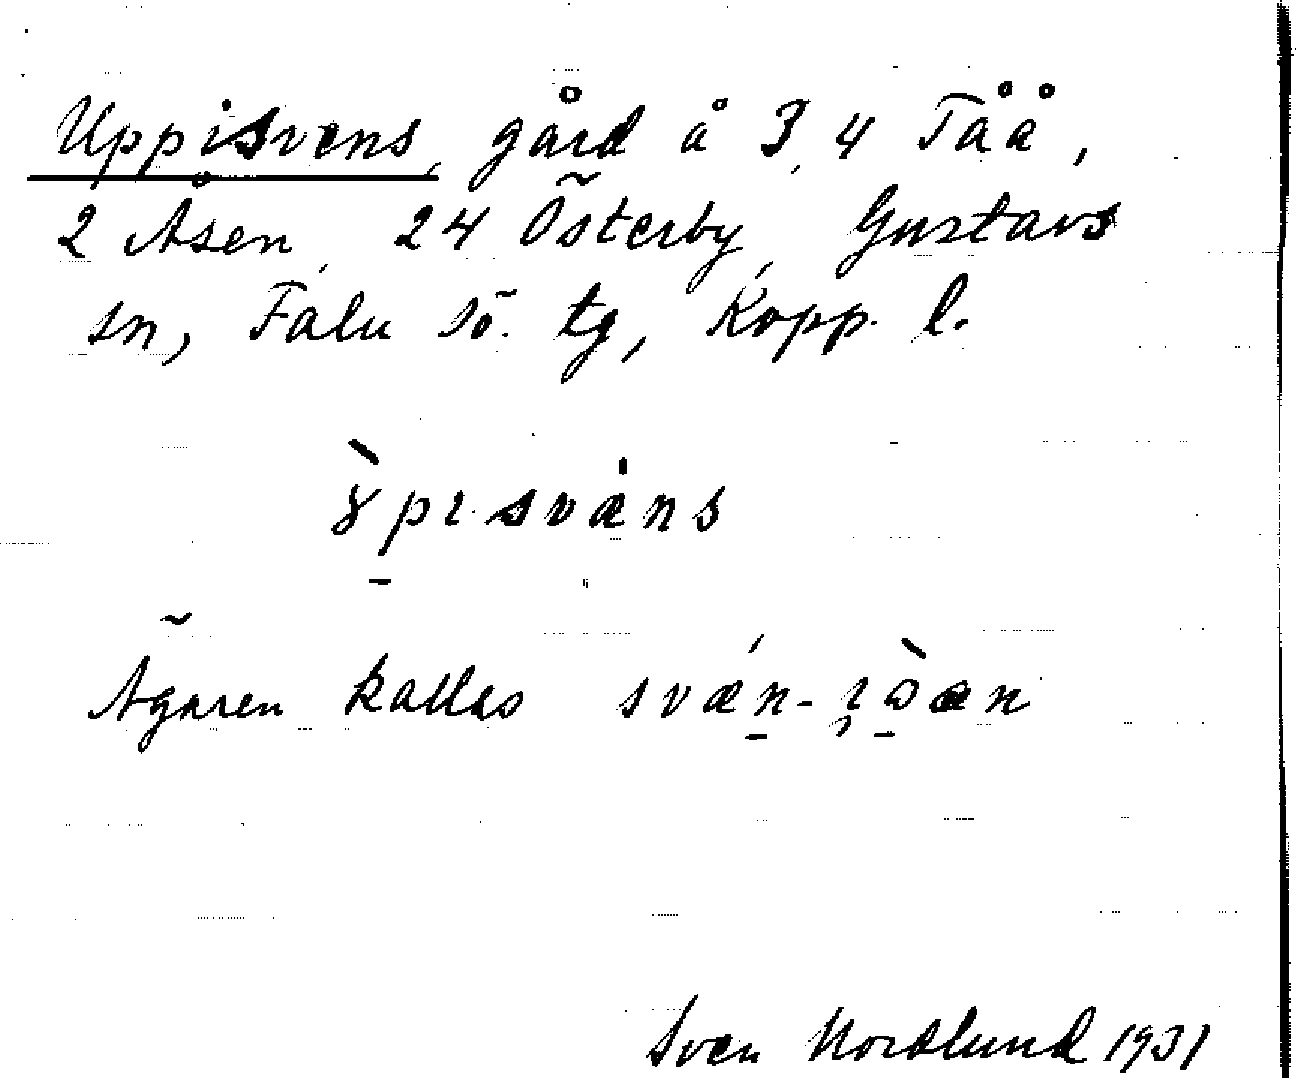 Uppisvens, gård å 3, 4 Tåå,
2 Åsen, 24 Österby, Gustavs
sn, Falu sö. tg, Kopp. l.
Ägaren kallas
Sven Nordlund 1931